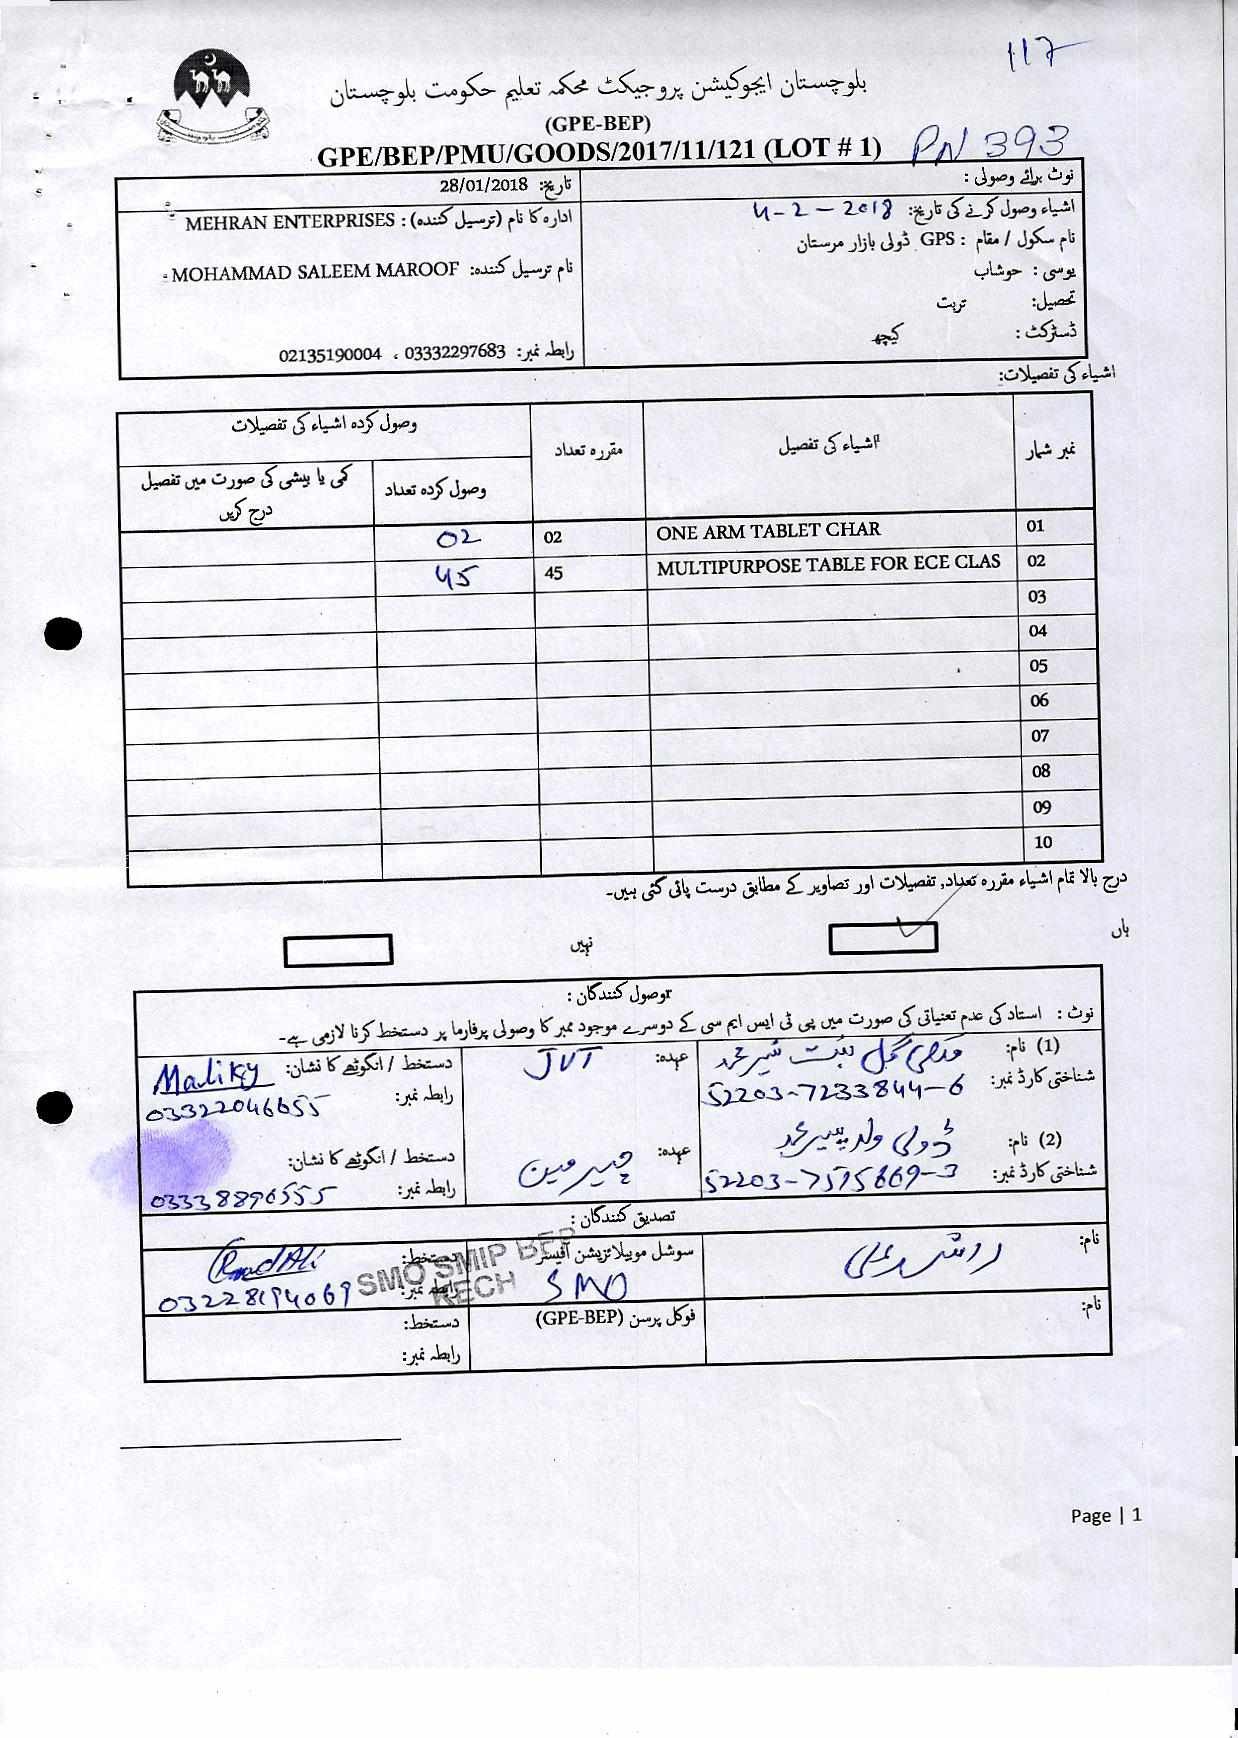 117
بلوچستان ایجوکیشن پروجیکٹ محکمہ تعلیم حکومت بلوچستان
(GPE-BEP)
GPE/BEP/PMU/GOODS/2017/11/121 (LOT # 1) PN 393
نوٹ برائے وصولی :
اشیاء وصول کرنے کی تاریخ: 4-2-2018
نام سکول / مقام : GPS ڈولی بازار مرستان
یوسی : حوشاب
تحصیل: تربت
ڈسٹرکٹ : کیچ
تاریخ: 28/01/2018
ادارہ کا نام (ترسیل کنندہ) : MEHRAN ENTERPRISES
نام ترسیل کنندہ: MOHAMMAD SALEEM MAROOF
رابطہ نمبر: 03332297683 ، 02135190004
اشیاء کی تفصیلات:
نمبر شمار اشیاء کی تفصیل مقررہ تعداد وصول کردہ اشیاء کی تفصیلات
وصول کردہ تعداد کمی یا بیشی کی صورت میں تفصیل درج کریں
01 ONE ARM TABLET CHAR 02 02
02 MULTIPURPOSE TABLE FOR ECE CLAS 45 45
03
04
05
06
07
08
09
10
درج بالا تمام اشیاء مقررہ تعداد, تفصیلات اور تصاویر کے مطابق درست پائی گئی ہیں۔
ہاں نہیں
وصول کنندگان :
نوٹ : استاد کی عدم تعنیاتی کی صورت میں پی ٹی ایس ایم سی کے دوسرے موجود ممبر کا وصولی پرفارما پر دستخط کرنا لازمی ہے۔
(1) نام: گل بنت شیر محمد عہدہ: JVT دستخط / انگوٹھے کا نشان:
شناختی کارڈ نمبر: 52203-7233844-6 رابطہ نمبر: 03322046655
(2) نام: ڈولی ولد پیر محمد عہدہ: چیرمین دستخط / انگوٹھے کا نشان:
شناختی کارڈ نمبر: 52203-7575869-3 رابطہ نمبر: 03338896555
تصدیق کنندگان :
نام: سوشل موبیلائزیشن آفیسر SMO دستخط:
رابطہ نمبر: 03228194069
SMO SMIP BEP
KECH
نام: فوکل پرسن (GPE-BEP) دستخط:
رابطہ نمبر:
Page | 1